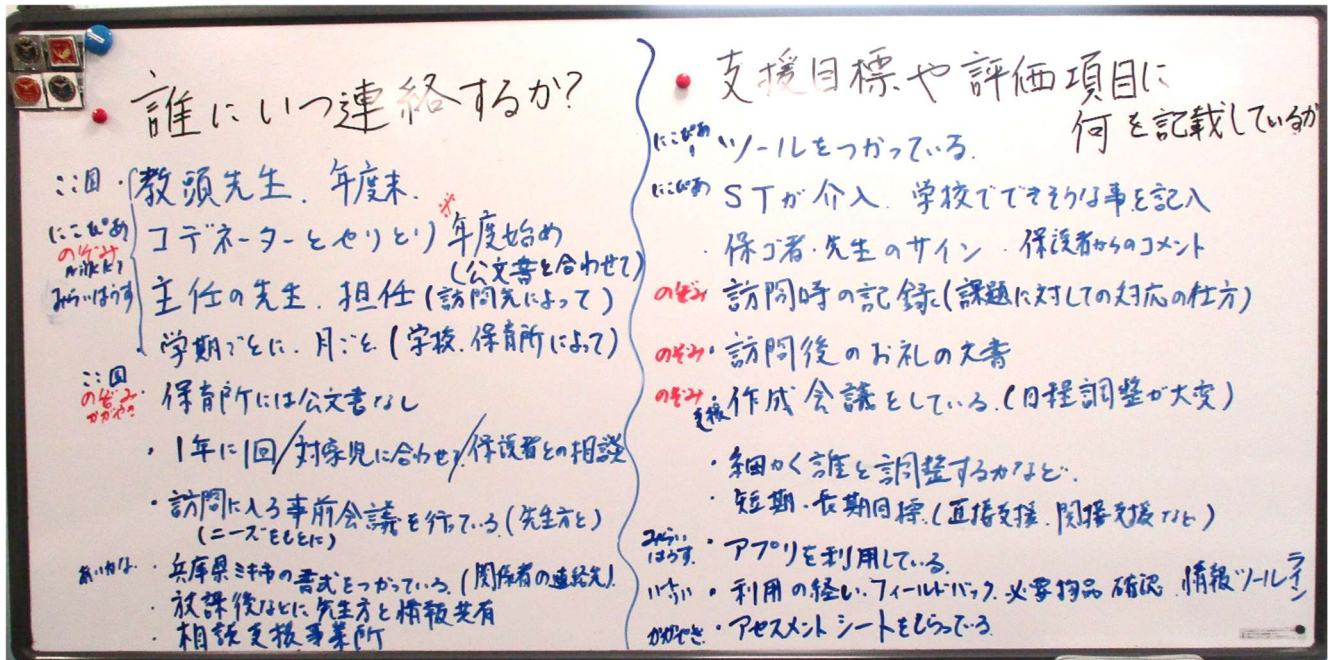 誰にいつ連絡するか?
ここ園・教頭先生、年度末.
にこぴあ のぞみ みらいはうす
コデネーターとやりとり ※年度始め
(公文書と合わせて)
主任の先生、担任(訪問先によって)
・学期ごとに、月ごと(学校、保育所によって)
ここ園 のぞみ かがやき
・保育所には公文書なし
・1年に1回/対象児に合わせて/保護者との相談
・訪問に入る事前会議を行っている(先生方と)
(ニーズをもとに)
・兵庫県ミキ市の書式をつかっている。(関係者の連絡先)
・放課後などに先生方と情報共有
・相談支援事業所
支援目標や評価項目に
何を記載しているか
にこぴあ ・ツールをつかっている。
にこぴあ STが介入、学校でできそうな事を記入
・保ゴ者・先生のサイン ・保護者からのコメント
のぞみ・訪問時の記録(課題に対しての対応の仕方)
のぞみ・訪問後のお礼の文書
のぞみ・支援作成会議をしている。(日程調整が大変)
・細かく誰と調整するかなど.
・短期・長期目標(直接支援、間接支援など)
みらいはうす・アプリを利用している。
・利用の経い、フィールドバック、必要物品確認、情報ツール ライン
かがやき・アセスメントシートをもらっている.